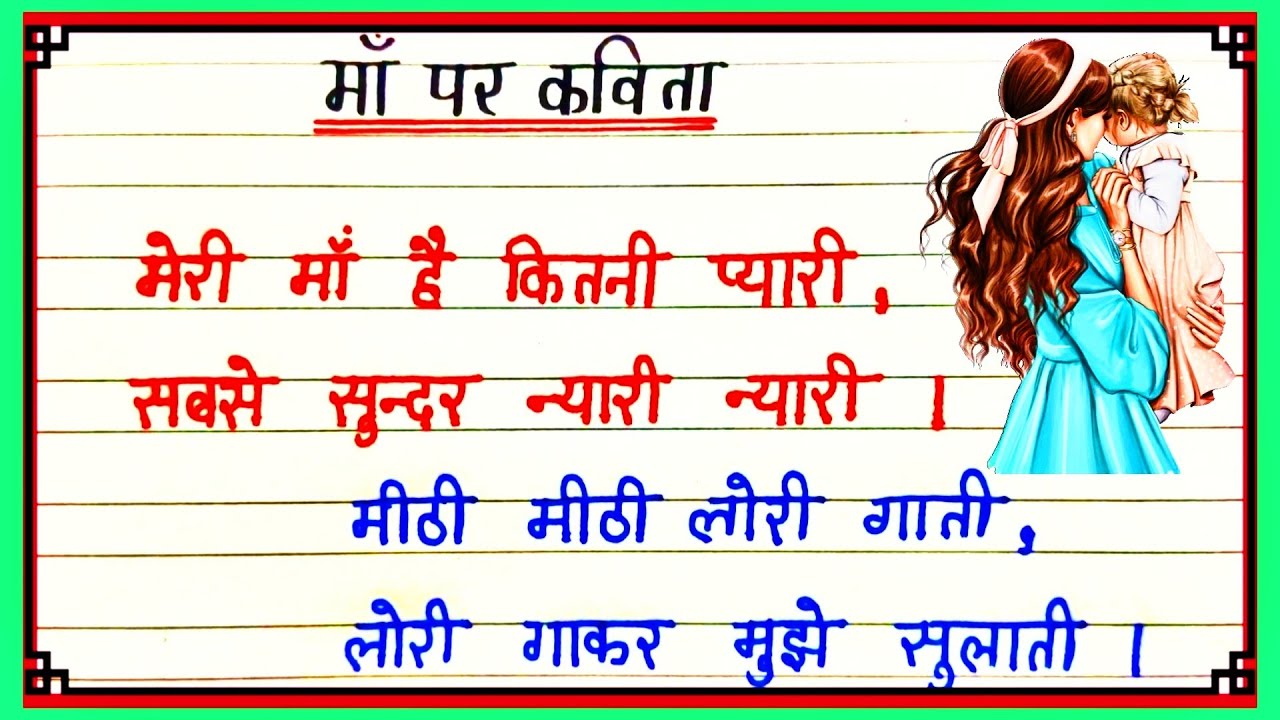 माँ पर कविता
मेरी माँ है कितनी प्यारी,
सबसे सुन्दर न्यारी न्यारी ।
मीठी मीठी लोरी गाती,
लोरी गाकर मुझे सुलाती ।